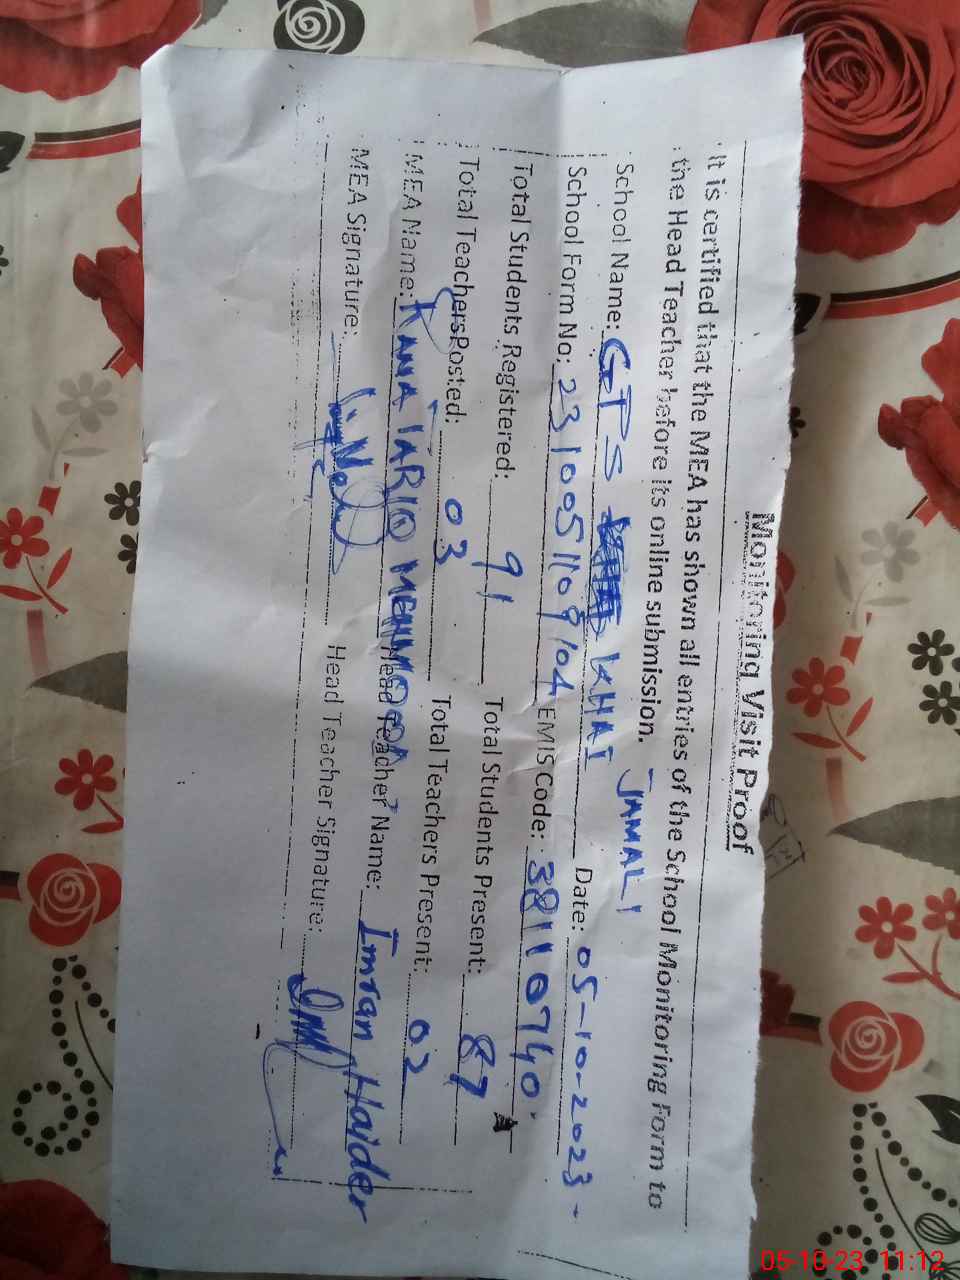 Monitoring Visit Proof
It is certified that the MEA has shown all entries of the School Monitoring Form to
the Head Teacher before its online submission.
School Name: GPS KHAI JAMALI Date: 05-10-2023
School Form No: 2310051109104 EMIS Code: 38110740
Total Students Registered: 91 Total Students Present: 87
Total Teachers Posted: 03 Total Teachers Present: 02
MEA Name: RANA TARIQ MEHMOOD Head Teacher Name: Imran Haider
MEA Signature: Head Teacher Signature:
05-10-23 11:12